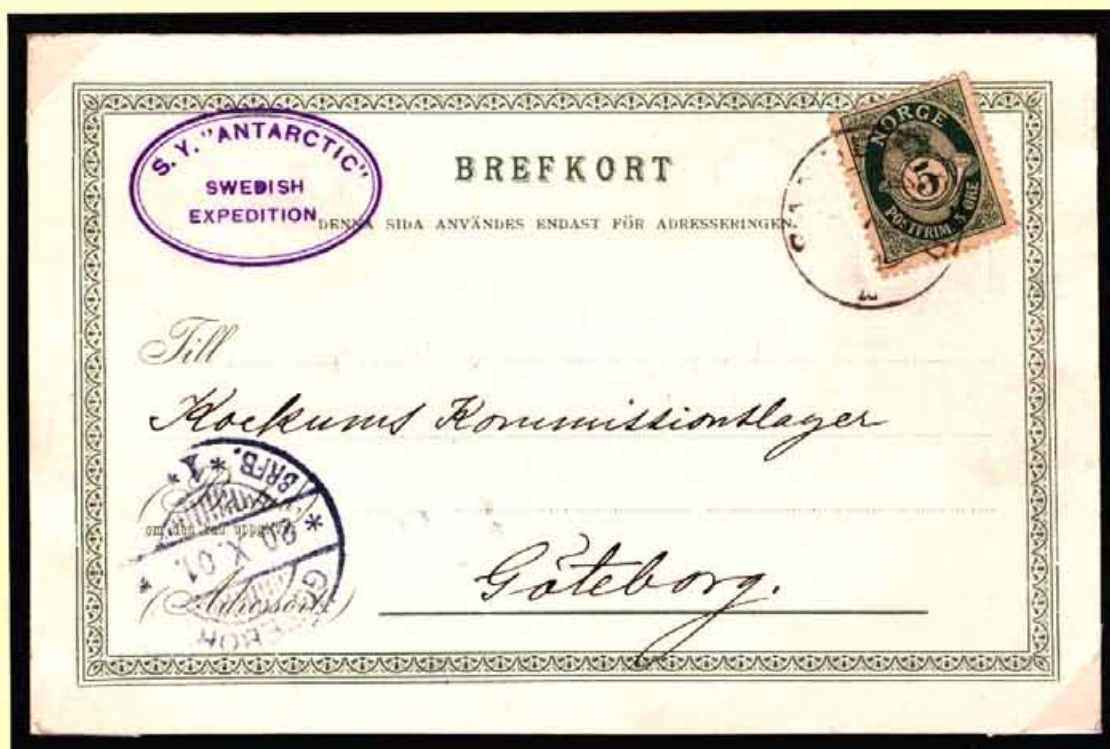 S. Y. "ANTARCTIC"
SWEDISH
EXPEDITION
BREFKORT
DENNA SIDA ANVÄNDES ENDAST FÖR ADRESSERINGEN.
NORGE
5
POSTFRIM. 5 ØRE
Till
Kockums Kommissionslager
BRFB.
* 1 *
20 X. 01.
(Adressort)
Göteborg.